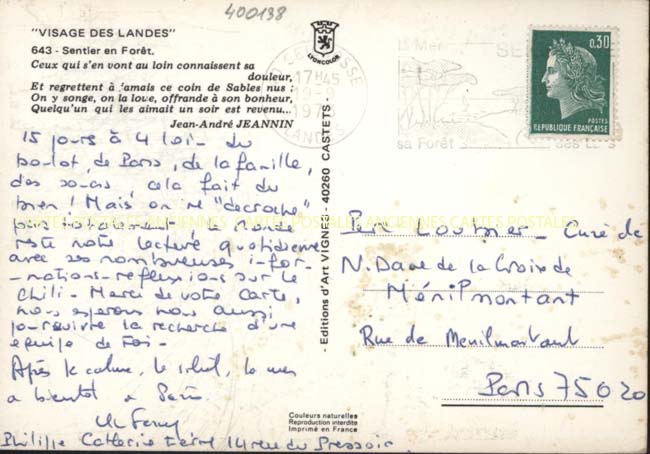 400138
"VISAGE DES LANDES"
643 - Sentier en Forêt.
Ceux qui s'en vont au loin connaissent sa
douleur,
Et regrettent à jamais ce coin de Sables nus ;
On y songe, on la loue, offrande à son bonheur,
Quelqu'un qui les aimait un soir est revenu...
Jean-André JEANNIN
LYONCOLOR
17 H 45
19-9
LANDES
la Mer
sa Forêt
ses Lacs
0,30
POSTES
REPUBLIQUE FRANÇAISE
15 jours à 4 loin du
boulot, de Paris, de la famille,
des soucis, cela fait du
bien ! Mais on ne "décroche"
pas totalement, le Monde
reste notre lecture quotidienne
avec ses nombreuses infor-
-mations-réflexions sur le
Chili - Merci de votre carte,
nous espérons nous aussi
poursuivre la recherche d'une
équipe de Foi -
Après le calme, le soleil, la mer
à bientôt à Paris
Philippe Catherine 14 rue du Pressoir
- Editions d'Art VIGNES - 40260 CASTETS -
Père Loubier - Curé de
N. Dame de la Croix de
Ménilmontant
Rue de Menilmontant
Paris 75020
Couleurs naturelles
Reproduction interdite
Imprimé en France
CARTES POSTALES ANCIENNES